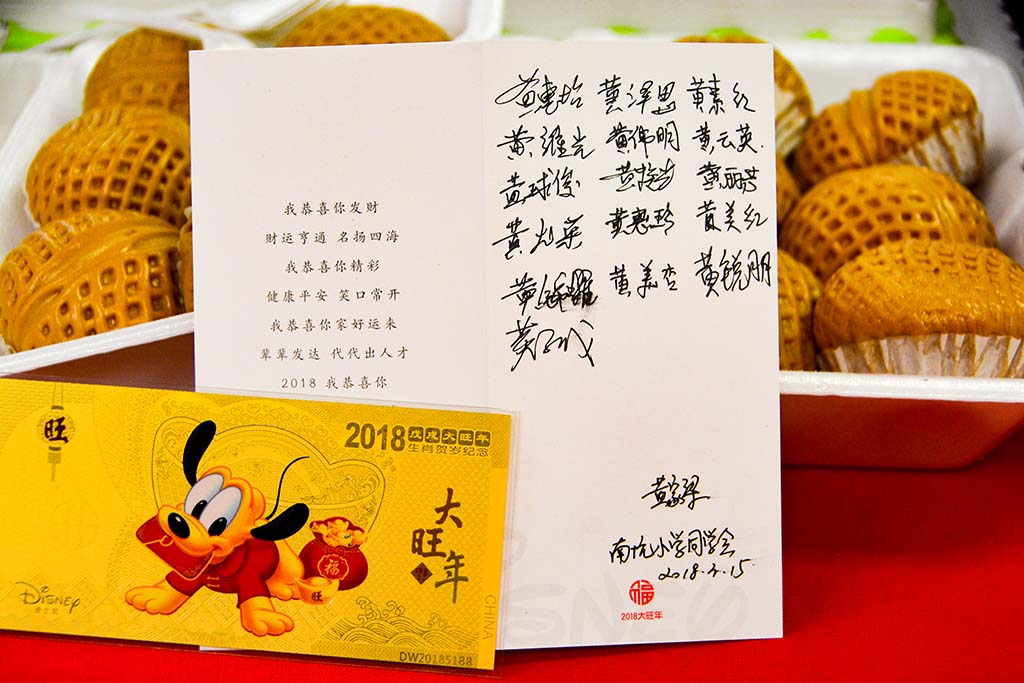 我恭喜你发财
财运亨通 名扬四海
我恭喜你精彩
健康平安 笑口常开
我恭喜你家好运来
辈辈发达 代代出人才
2018 我恭喜你
黄惠珍 黄泽思 黄素红
黄维光 黄伟明 黄云英
黄球俊 黄丽芳
黄光英 黄惠玲 黄美红
黄美杏 黄锐朋
黄家梁
南坑小学同学会
2018.2.15
福
2018大旺年
旺
2018戊戌大旺年
生肖贺岁纪念
大旺年
福
福
DISNEY
迪士尼
CHINA
DW20185188
DISNEY